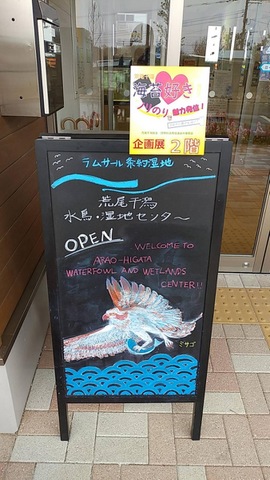 海苔好き
魅力発信!
企画展 2階
ラムサール条約湿地
荒尾干潟
水鳥・湿地センター
OPEN
WELCOME TO
ARAO-HIGATA
WATERFOWL AND WETLANDS
CENTER!!
ミサゴ